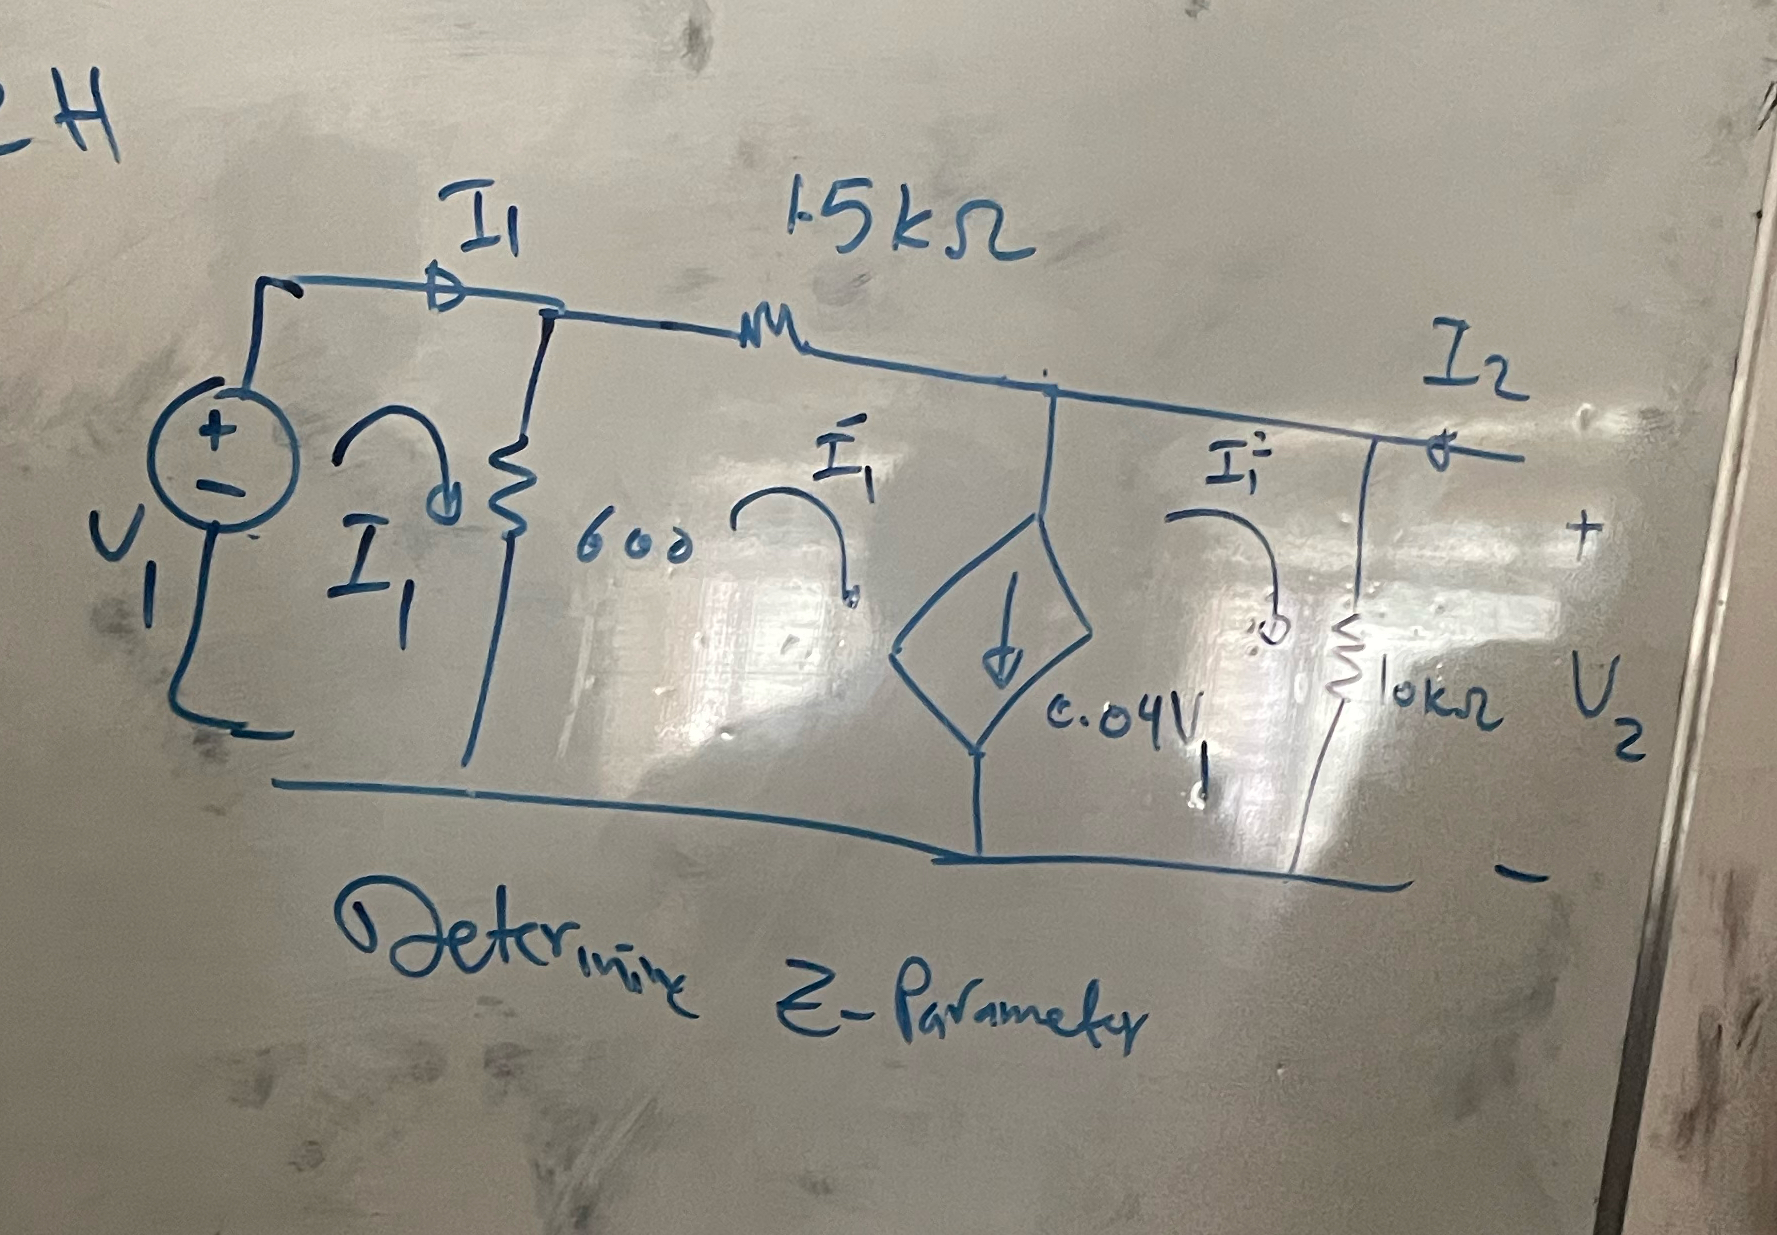 H
I1
1.5kΩ
I2
+
-
V1
I1
600
I1'
I1"
0.04V1
10kΩ
+
V2
-
Determine Z-Parameter